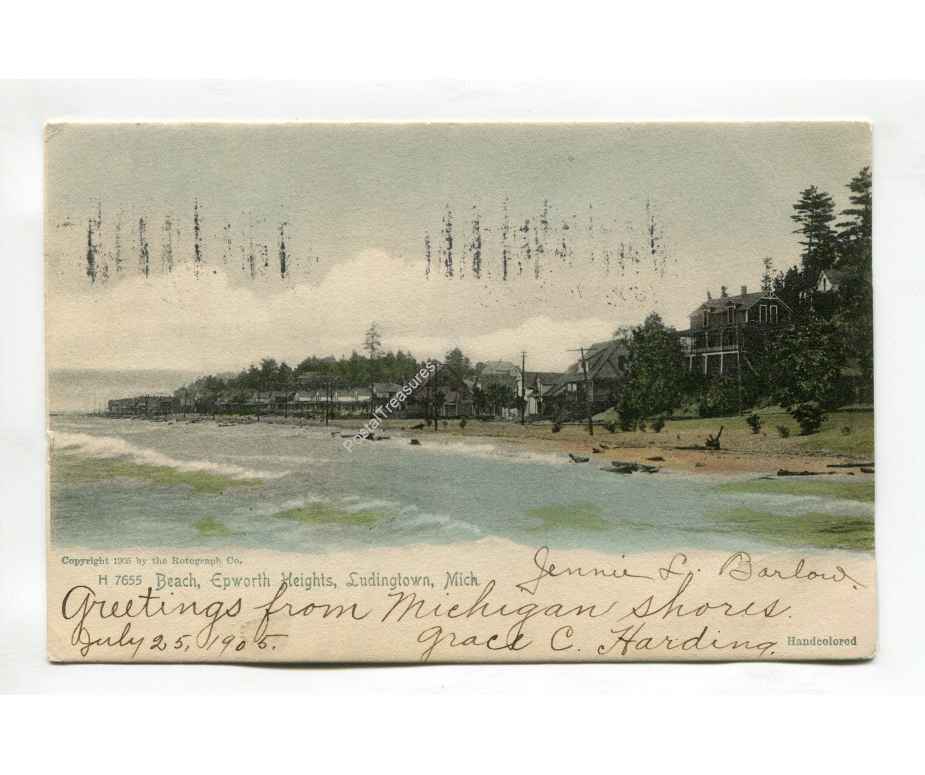 PostalTreasures
Copyright 1905 by the Rotograph Co.
H 7655 Beach, Epworth Heights, Ludingtown, Mich.
Jennie L. Barlow.
Greetings from Michigan shores.
July 25, 1905. Grace C. Harding.
Handcolored